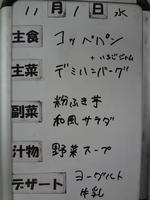 11月1日 水
主食 コッペパン
+いちごジャム
主菜 デミハンバーグ
副菜 粉ふき芋
和風サラダ
汁物 野菜スープ
デザート ヨーグルト
牛乳